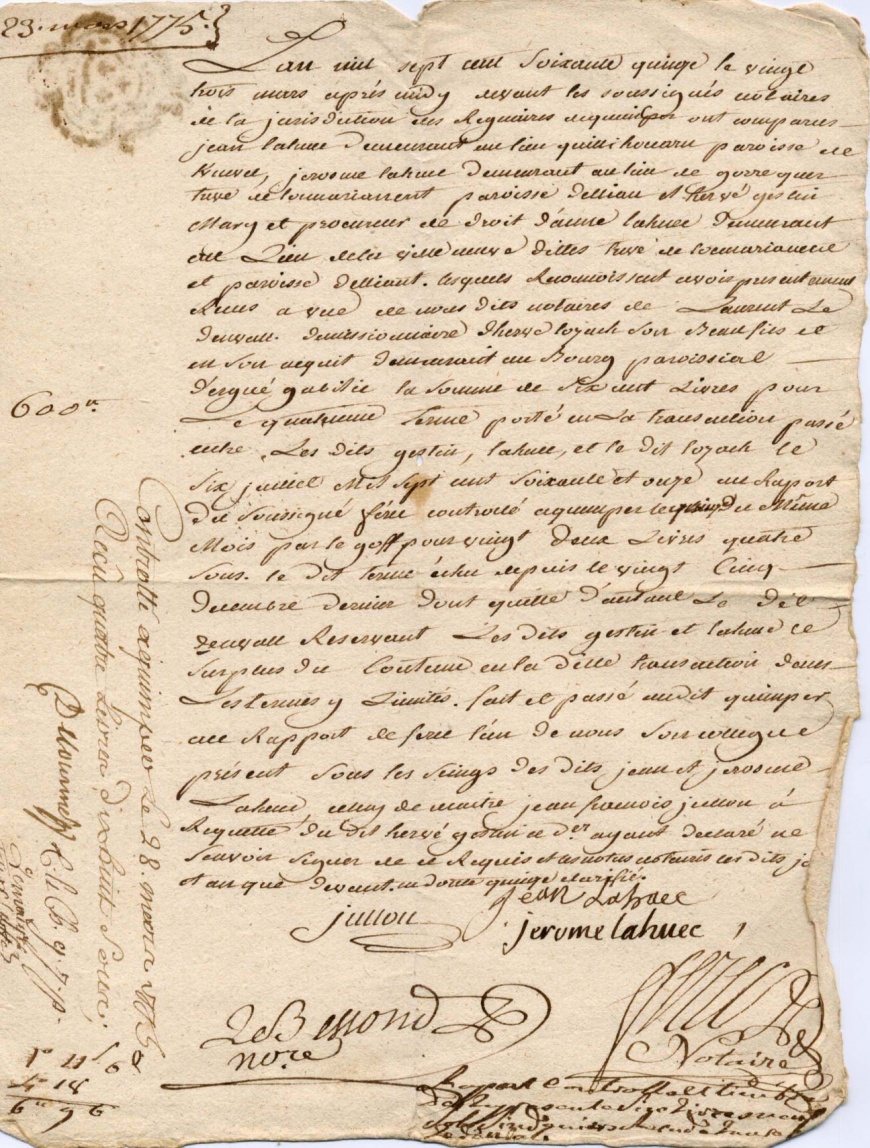 23. mars 1775.
L'an mil sept cent soixante quinze le vingt
trois mars aprés midy devant les soussignés notaires
de la jurisdiction des Reguaires a quimper ont comparus
jean lahuec demeurant au lieu quillihouarn paroisse de
jerosme lahuec demeurant au lieu de gorrequer
treve de locmarianent paroisse delliant et hervé gestin
Mary et procureur de droit d'anne lahuec demeurant
au Lieu de la ville neuve dittes treve de locmarianent
et paroisse delliant. lesquels Reconnoissent avoir presentement
Recus a vue de nous dits notaires de Laurent Le
demissionnaire d'herve lozach son Beaufils et
en son acquit demeurant au Bourg paroissial
d'ergué gabéric la somme de six cent Livres pour
600 ₶
Le quatrieme terme porté en La transaction passé
entre Les dits gestin, lahuec, et le dit lozach le
six juillet mil sept cent soixante et onze au Raport
du soussigné controllé a quimper le du Même
Mois par le goff pour vingt deux Livres quatre
sous. le dit terme échu depuis le vingt Cinq
decembre dernier dont quitte d'autant Le dit
Reservant Les dits gestin et lahuec le
surplus du Contenu en la ditte transaction dans
Les termes y Limités. fait et passé audit quimper
au Rapport de l'un de nous son
présent sous les seings des dits jean et jerosme
Lahuec celuy de maitre jean francois jullou á
Requette du dit hervé gestin ayant declaré ne
sçavoir signer de ce Requis et les notres notaires les dits jo
et an que devant.
jullou
jean Lahuec
jerome lahuec
LeBescond
nore
Notaire
Controllé a quimper Le 28. mars 1775
Recu quatre Livres dix huit sous,
1 11 6
4 18
6 9 6